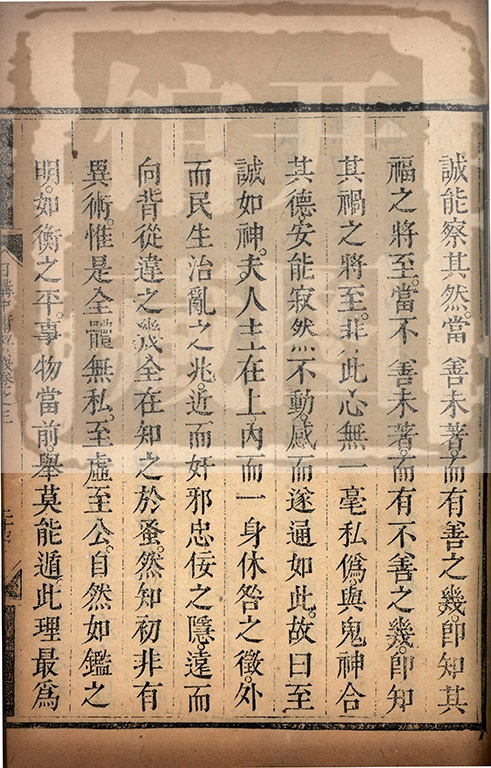 誠能察其然。當善未著。而有善之幾。卽知其
福之將至。當不善未著。而有不善之幾。卽知
其禍之將至。非此心無一毫私僞。與鬼神合
其德。安能寂然不動。感而遂通如此。故曰至
誠如神。夫人主在上。內而一身休咎之徵。外
而民生治亂之兆。近而奸邪忠佞之隱。遠而
向背從違之幾。全在知之於蚤。然知初非有
異術。惟是全體無私。至虛至公。自然如鑑之
明。如衡之平。事物當前。舉莫能遁。此理最爲
日講四書解義卷之二